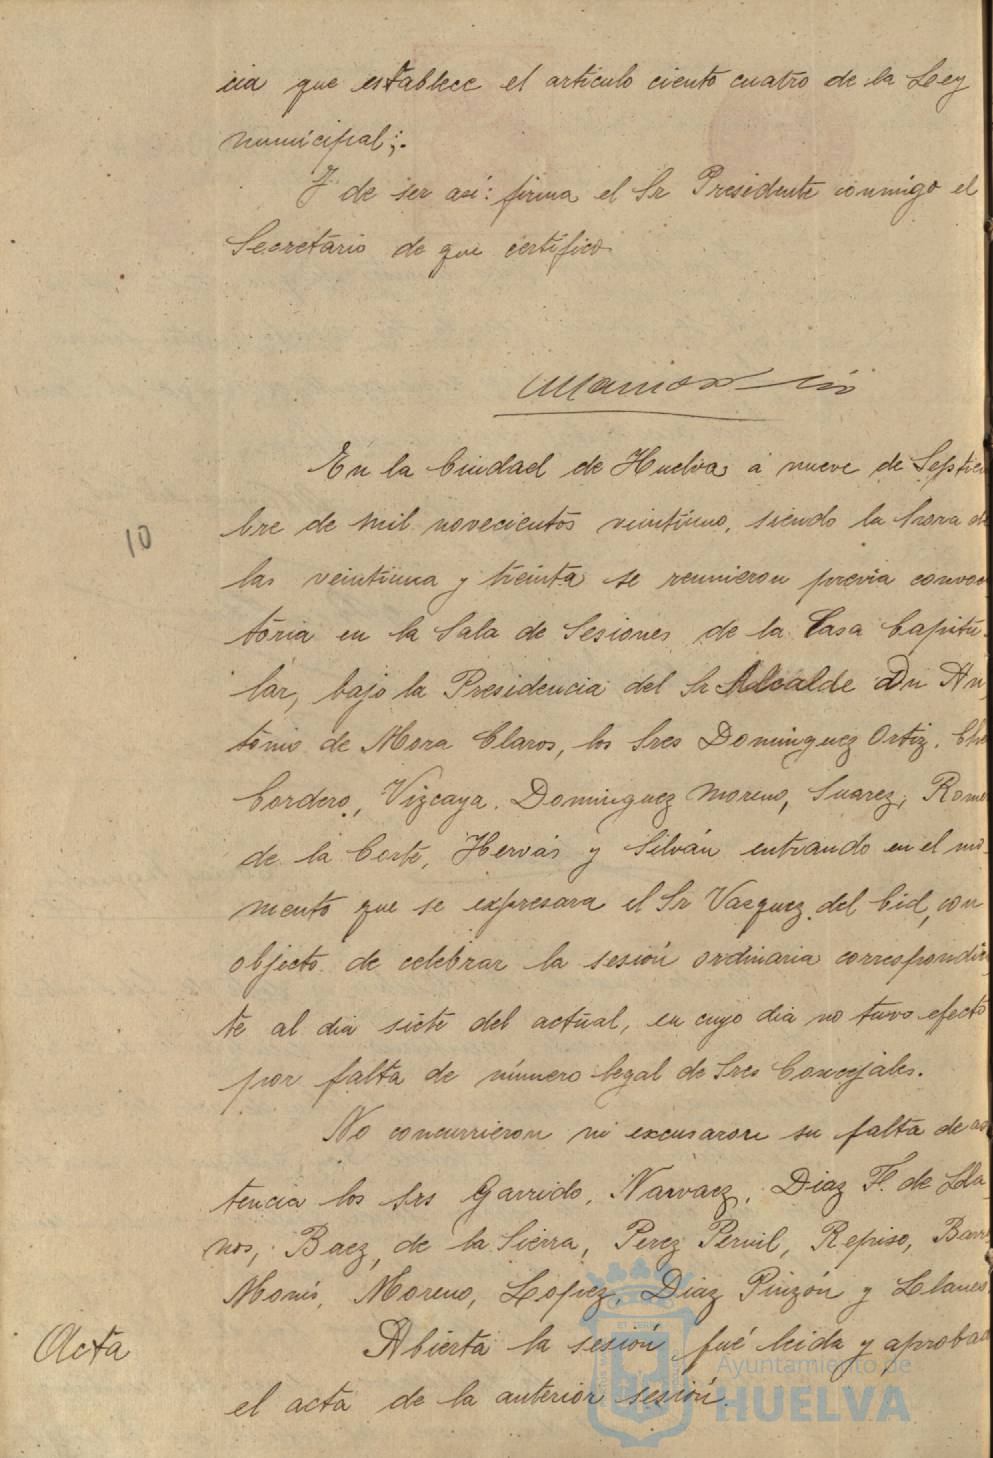 cia que establece el artículo ciento cuatro de la Ley
municipal;.
Y de ser así: firma el Sr Presidente conmigo el
Secretario de que certifico.
En la Ciudad de Huelva, a nueve de Septiem
bre de mil novecientos veintiuno, siendo la hora de
10
las veintiuna y treinta se reunieron previa convoca
toria en la Sala de Sesiones de la Casa Capitu-
lar, bajo la Presidencia del Sr Alcalde Dn An
tonio de Mora Claros, los Sres Dominguez Ortiz,
Cordero, Vizcaya, Dominguez Moreno, Suarez, Rome
de la Corte, Hervás y Silván entrando en el mo-
mento que se expresara el Sr Vazquez del Cid, con
objecto de celebrar la sesión ordinaria correspondien
te al dia siete del actual, en cuyo dia no tuvo efecto
por falta de número legal de Sres Concejales.
No concurrieron ni excusaron su falta de as
tencia los Srs Garrido, Narvaez, Diaz F. de Lla
nos, Baez, de la Sierra, Perez Pervil, Repiso, Barr
Monís, Moreno, Lopez, Diaz Pinzón y Llanes
Acta
Abierta la sesión fué leida y aprobad
el acta de la anterior sesión.
Ayuntamiento de
HUELVA